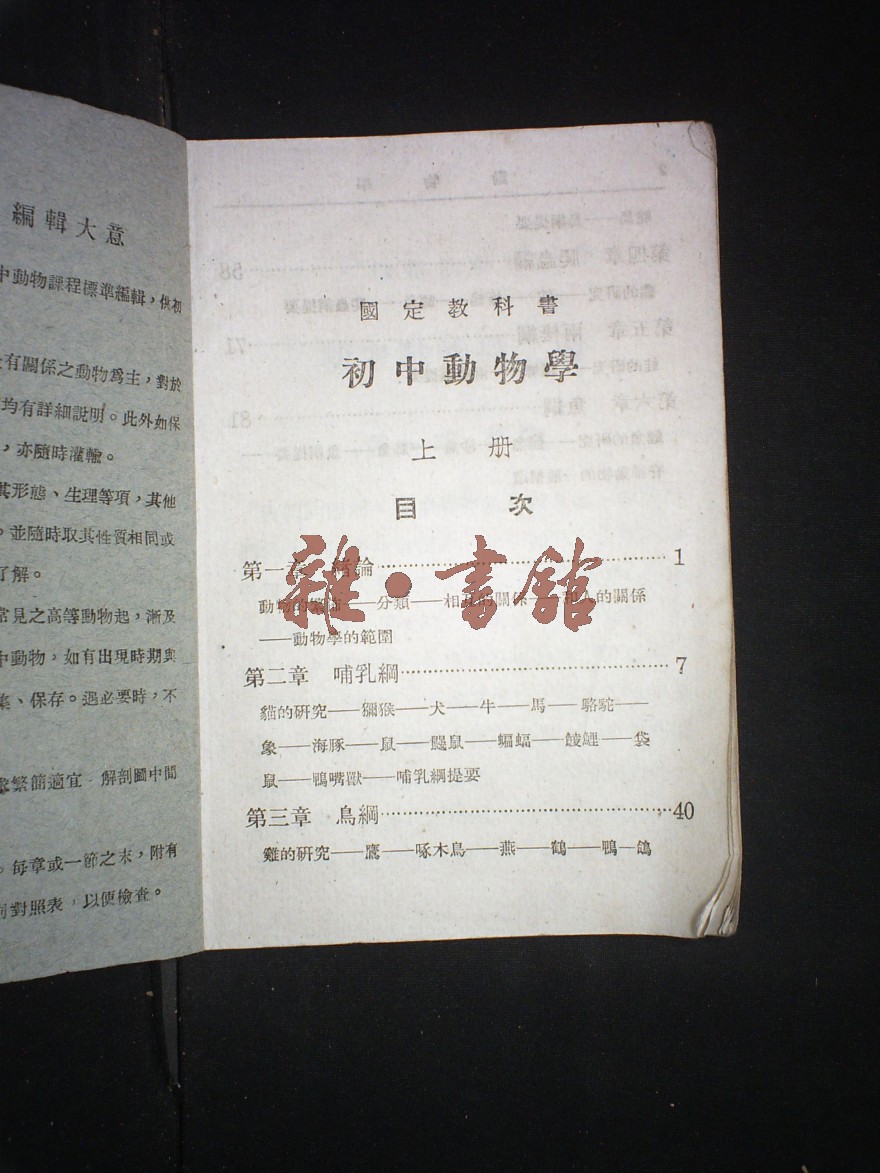 編輯大意
中動物課程標準編輯，供初
有關係之動物爲主，對於
均有詳細說明。此外如保
，亦隨時灌輸。
其形態、生理等項，其他
，並隨時取其性質相同或
了解。
常見之高等動物起，漸及
中動物，如有出現時期與
集、保存。遇必要時，不
繁簡適宜 解剖圖中間
。每章或一節之末，附有
對照表，以便檢查。
國定教科書
初中動物學
上册
目次
第一章 緒論 1
動物的 分類——相互的關係 的關係
——動物學的範圍
第二章 哺乳綱 7
貓的研究——獼猴——犬——牛——馬——駱駝——
象——海豚——鼠——鼴鼠——蝙蝠——鯪鯉——袋
鼠——鴨嘴獸——哺乳綱提要
第三章 鳥綱 40
雞的研究——鷹——啄木鳥——燕——鶴——鴨—鴿
雜·書館